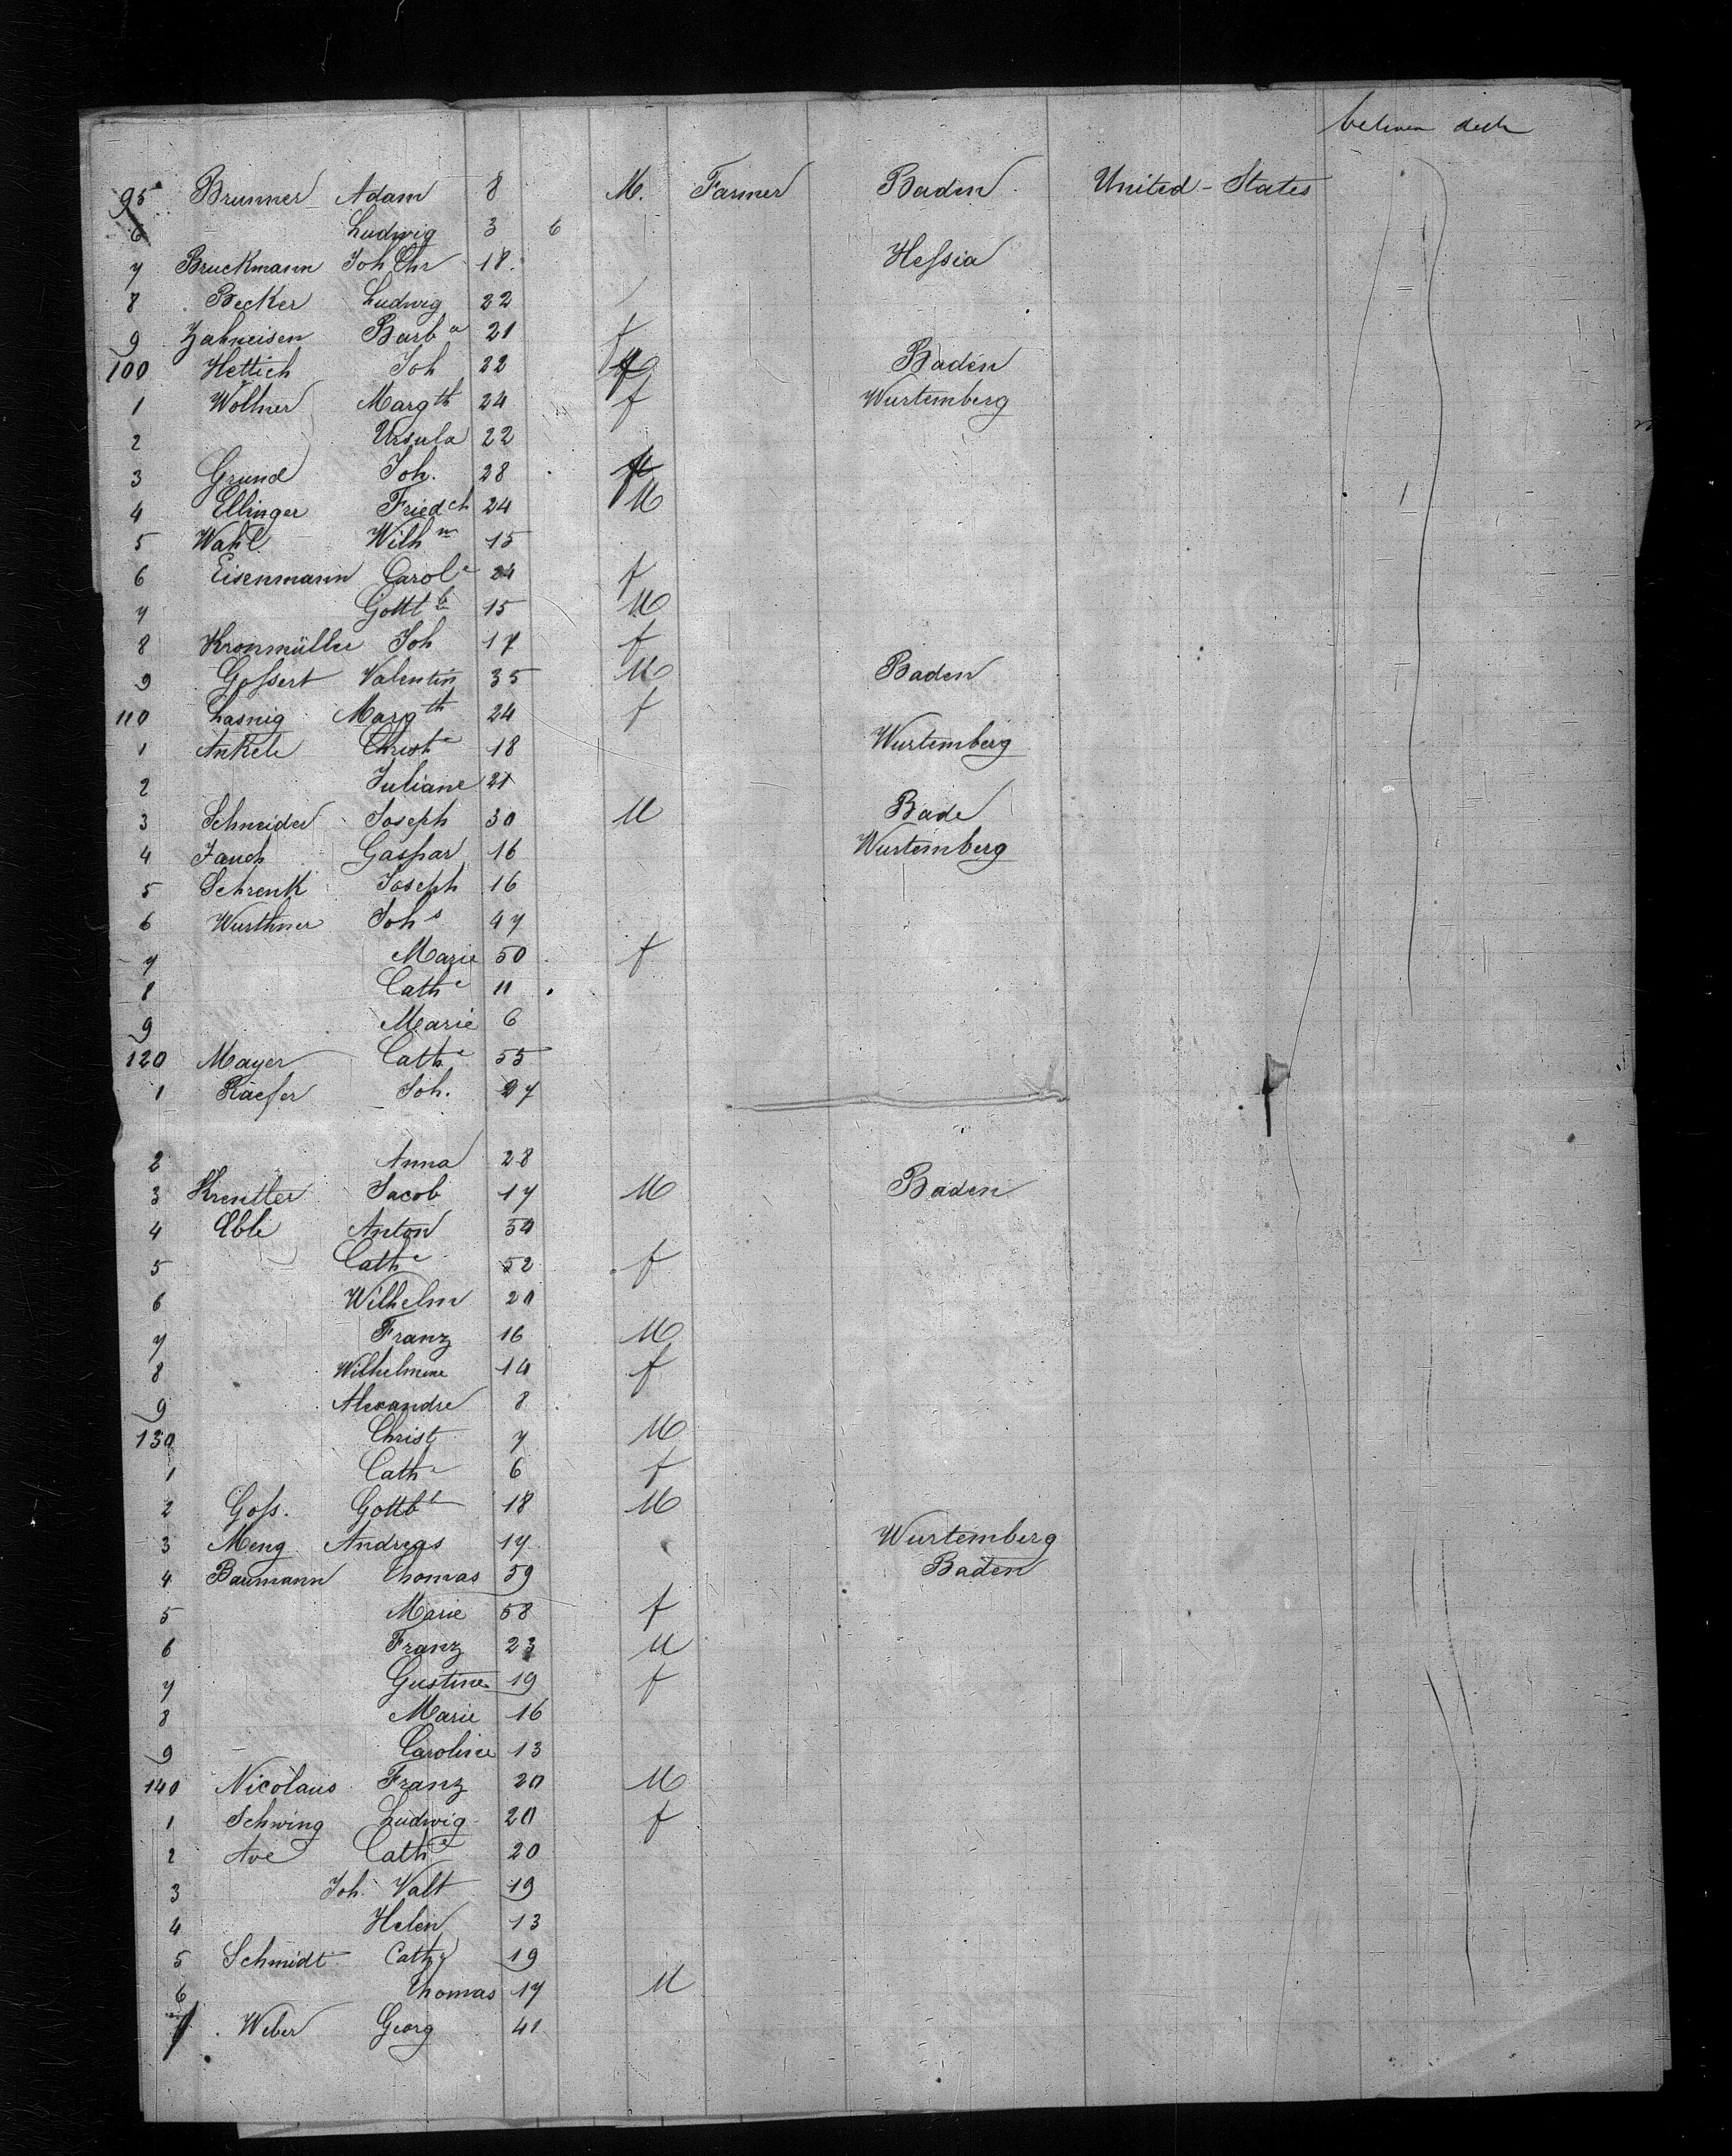 between deck
95 Brunner Adam 8 M. Farmer Baden United-States
6 Ludwig 3 6
7 Bruckmann Joh Chr 18. Hessia
8 Becker Ludwig 22
9 Zahneisen Barb a 21 f
100 Hettich Joh 22 Baden
1 Wollner Margth 24 f Wurtemberg
2 Ursula 22
3 Grund Joh. 28
4 Ellinger Friedch 24 M
5 Wahl Wilhm 15
6 Eisenmann Carole 24 f
7 Gottl 15 M
8 Kronmüller Joh 17 f
9 Gossert Valentin 35 M Baden
110 Lasnig Margth 24 f
1 Ankele Christe 18 Wurtemberg
2 Juliane 21
3 Schneider Joseph 30 M Bade
4 Jauch Gaspar 16 Wurtemberg
5 Schrenk Joseph 16
6 Wurthner Johs 47
7 Marie 50 f
8 Cathe 11
9 Marie 6
120 Mayer Cathe 55
1 Joh. 27
2 Anna 28
3 Krentler Jacob 17 M Baden
4 Eble Anton 54
5 Cathe 52 f
6 Wilhelm 20
7 Franz 16 M
8 Wilhelmine 14 f
9 Alexandre 8
130 Christ 7 M
1 Cathe 6 f
2 Goss. Gottb 18 M
3 Meng Andreas 17 Wurtemberg
4 Baumann Thomas 59 Baden
5 Marie 58 f
6 Franz 23 M
7 Gustine 19 f
8 Marie 16
9 Caroline 13
140 Nicolaus Franz 20 M
1 Schwing Ludwig 20 f
2 Ave Cathe 20
3 Joh. Valt 19
4 Helen 13
5 Schmidt Cath 19
6 Thomas 17 M
7 Weber Georg 41